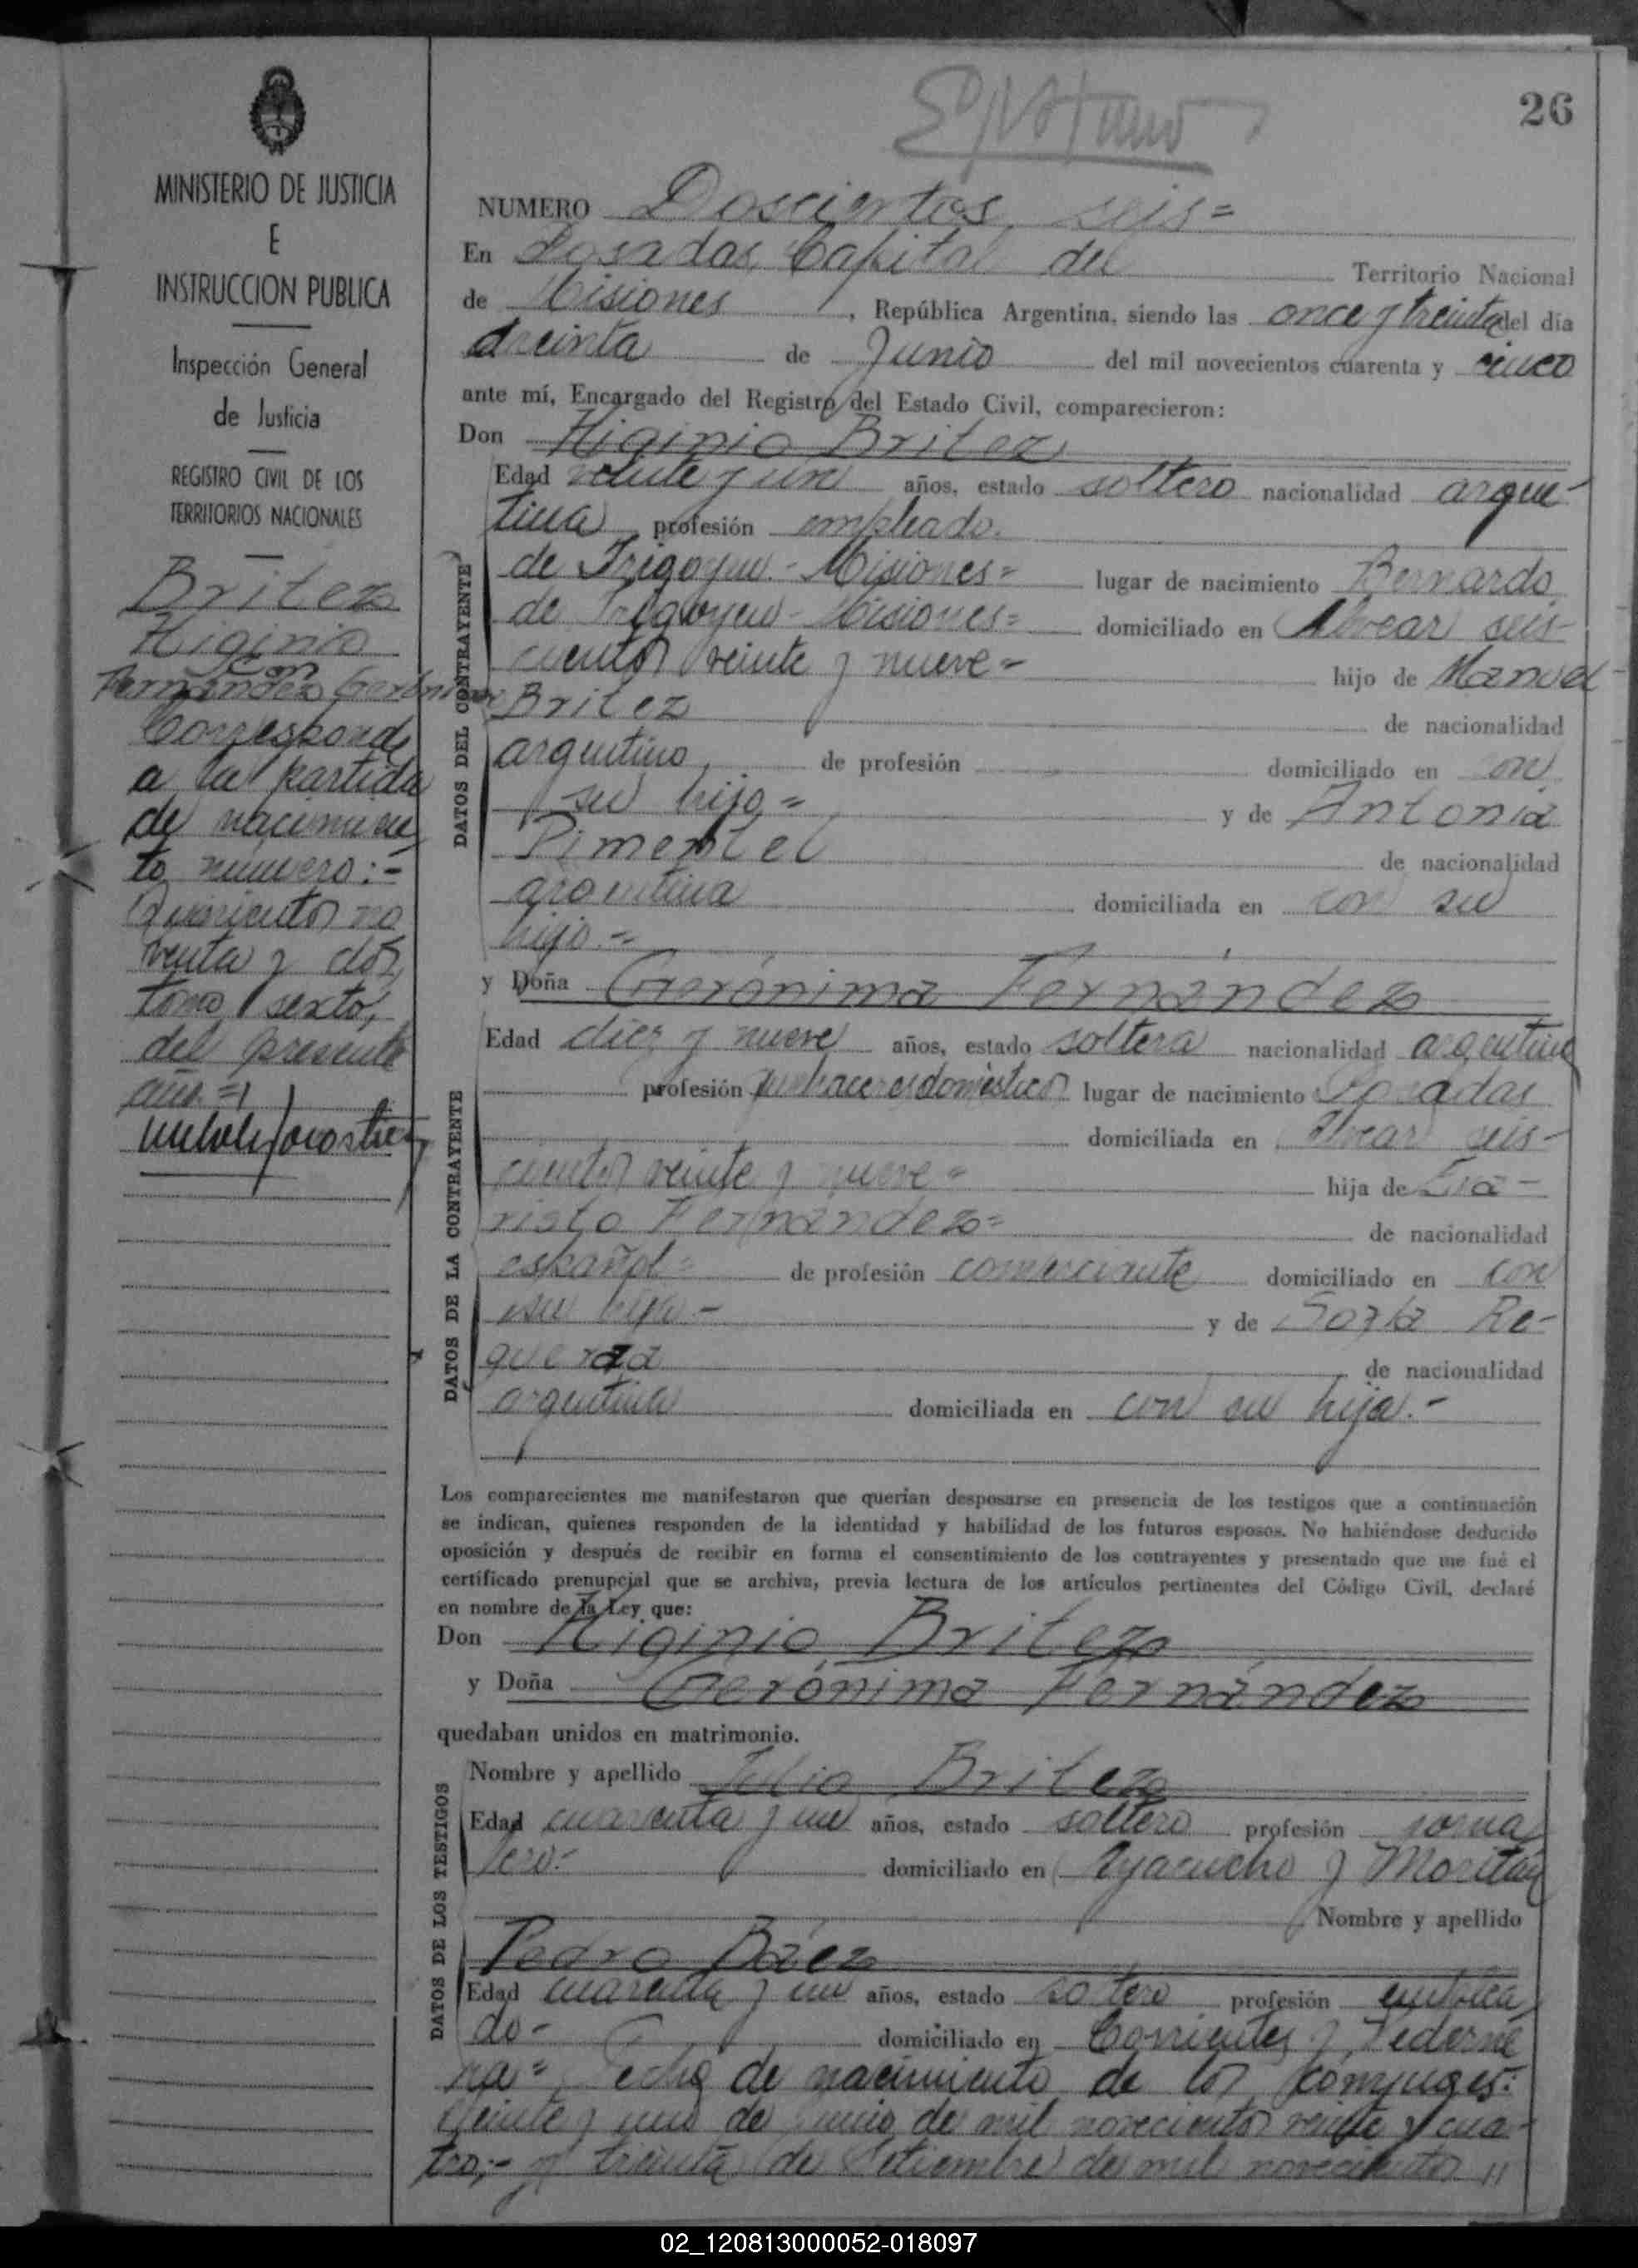 26
MINISTERIO DE JUSTICIA
E
INSTRUCCION PUBLICA
Inspección General
de Justicia
REGISTRO CIVIL DE LOS
TERRITORIOS NACIONALES
Britez
Higinio
con
Fernández Gerónima
Corresponde
a la partida
de nacimien
to número:-
Quinientos no
venta y dos,
tomo sexto,
del presente
año.=
NUMERO Doscientos seis=
En Posadas, Capital del Territorio Nacional
de Misiones, República Argentina, siendo las once y treinta del día
treinta de Junio del mil novecientos cuarenta y cinco
ante mí, Encargado del Registro del Estado Civil, comparecieron:
Don Higinio Britez
Edad veinte y un años, estado soltero nacionalidad argen-
tina profesión empleado.
de Irigoyen.- Misiones= lugar de nacimiento Bernardo
de Irigoyen - Misiones= domiciliado en Alvear seis-
cientos veinte y nueve= hijo de Manuel
Britez de nacionalidad
argentino, de profesión domiciliado en con
su hijo= y de Antonia
Pimentel de nacionalidad
argentina domiciliada en con su
hijo.=
y Doña Gerónima Fernández
Edad diez y nueve años, estado soltera nacionalidad argentina
profesión quehaceres domésticos lugar de nacimiento Posadas
domiciliada en Alvear seis-
cientos veinte y nueve= hija de Eva-
risto Fernández= de nacionalidad
español= de profesión comerciante domiciliado en con
su hija- y de Re-
de nacionalidad
argentina domiciliada en con su hija.-
DATOS DEL CONTRAYENTE
DATOS DE LA CONTRAYENTE
Los comparecientes me manifestaron que querían desposarse en presencia de los testigos que a continuación
se indican, quienes responden de la identidad y habilidad de los futuros esposos. No habiéndose deducido
oposición y después de recibir en forma el consentimiento de los contrayentes y presentado que me fué el
certificado prenupcial que se archiva, previa lectura de los artículos pertinentes del Código Civil, declaré
en nombre de la Ley que:
Don Higinio Britez
y Doña Gerónima Fernández
quedaban unidos en matrimonio.
Nombre y apellido Julio Britez
Edad cuarenta y un años, estado soltero profesión jorna
lero.- domiciliado en Ayacucho y
Nombre y apellido
Pedro Báez
Edad cuarenta y un años, estado soltero profesión emplea
do- domiciliado en Corrientes y Federna
na= Fecha de nacimiento de los cónyuges:
Veinte y uno de Junio de mil novecientos veinte y cua-
tro;- y treinta de Setiembre de mil novecientos //
DATOS DE LOS TESTIGOS
02_120813000052-018097